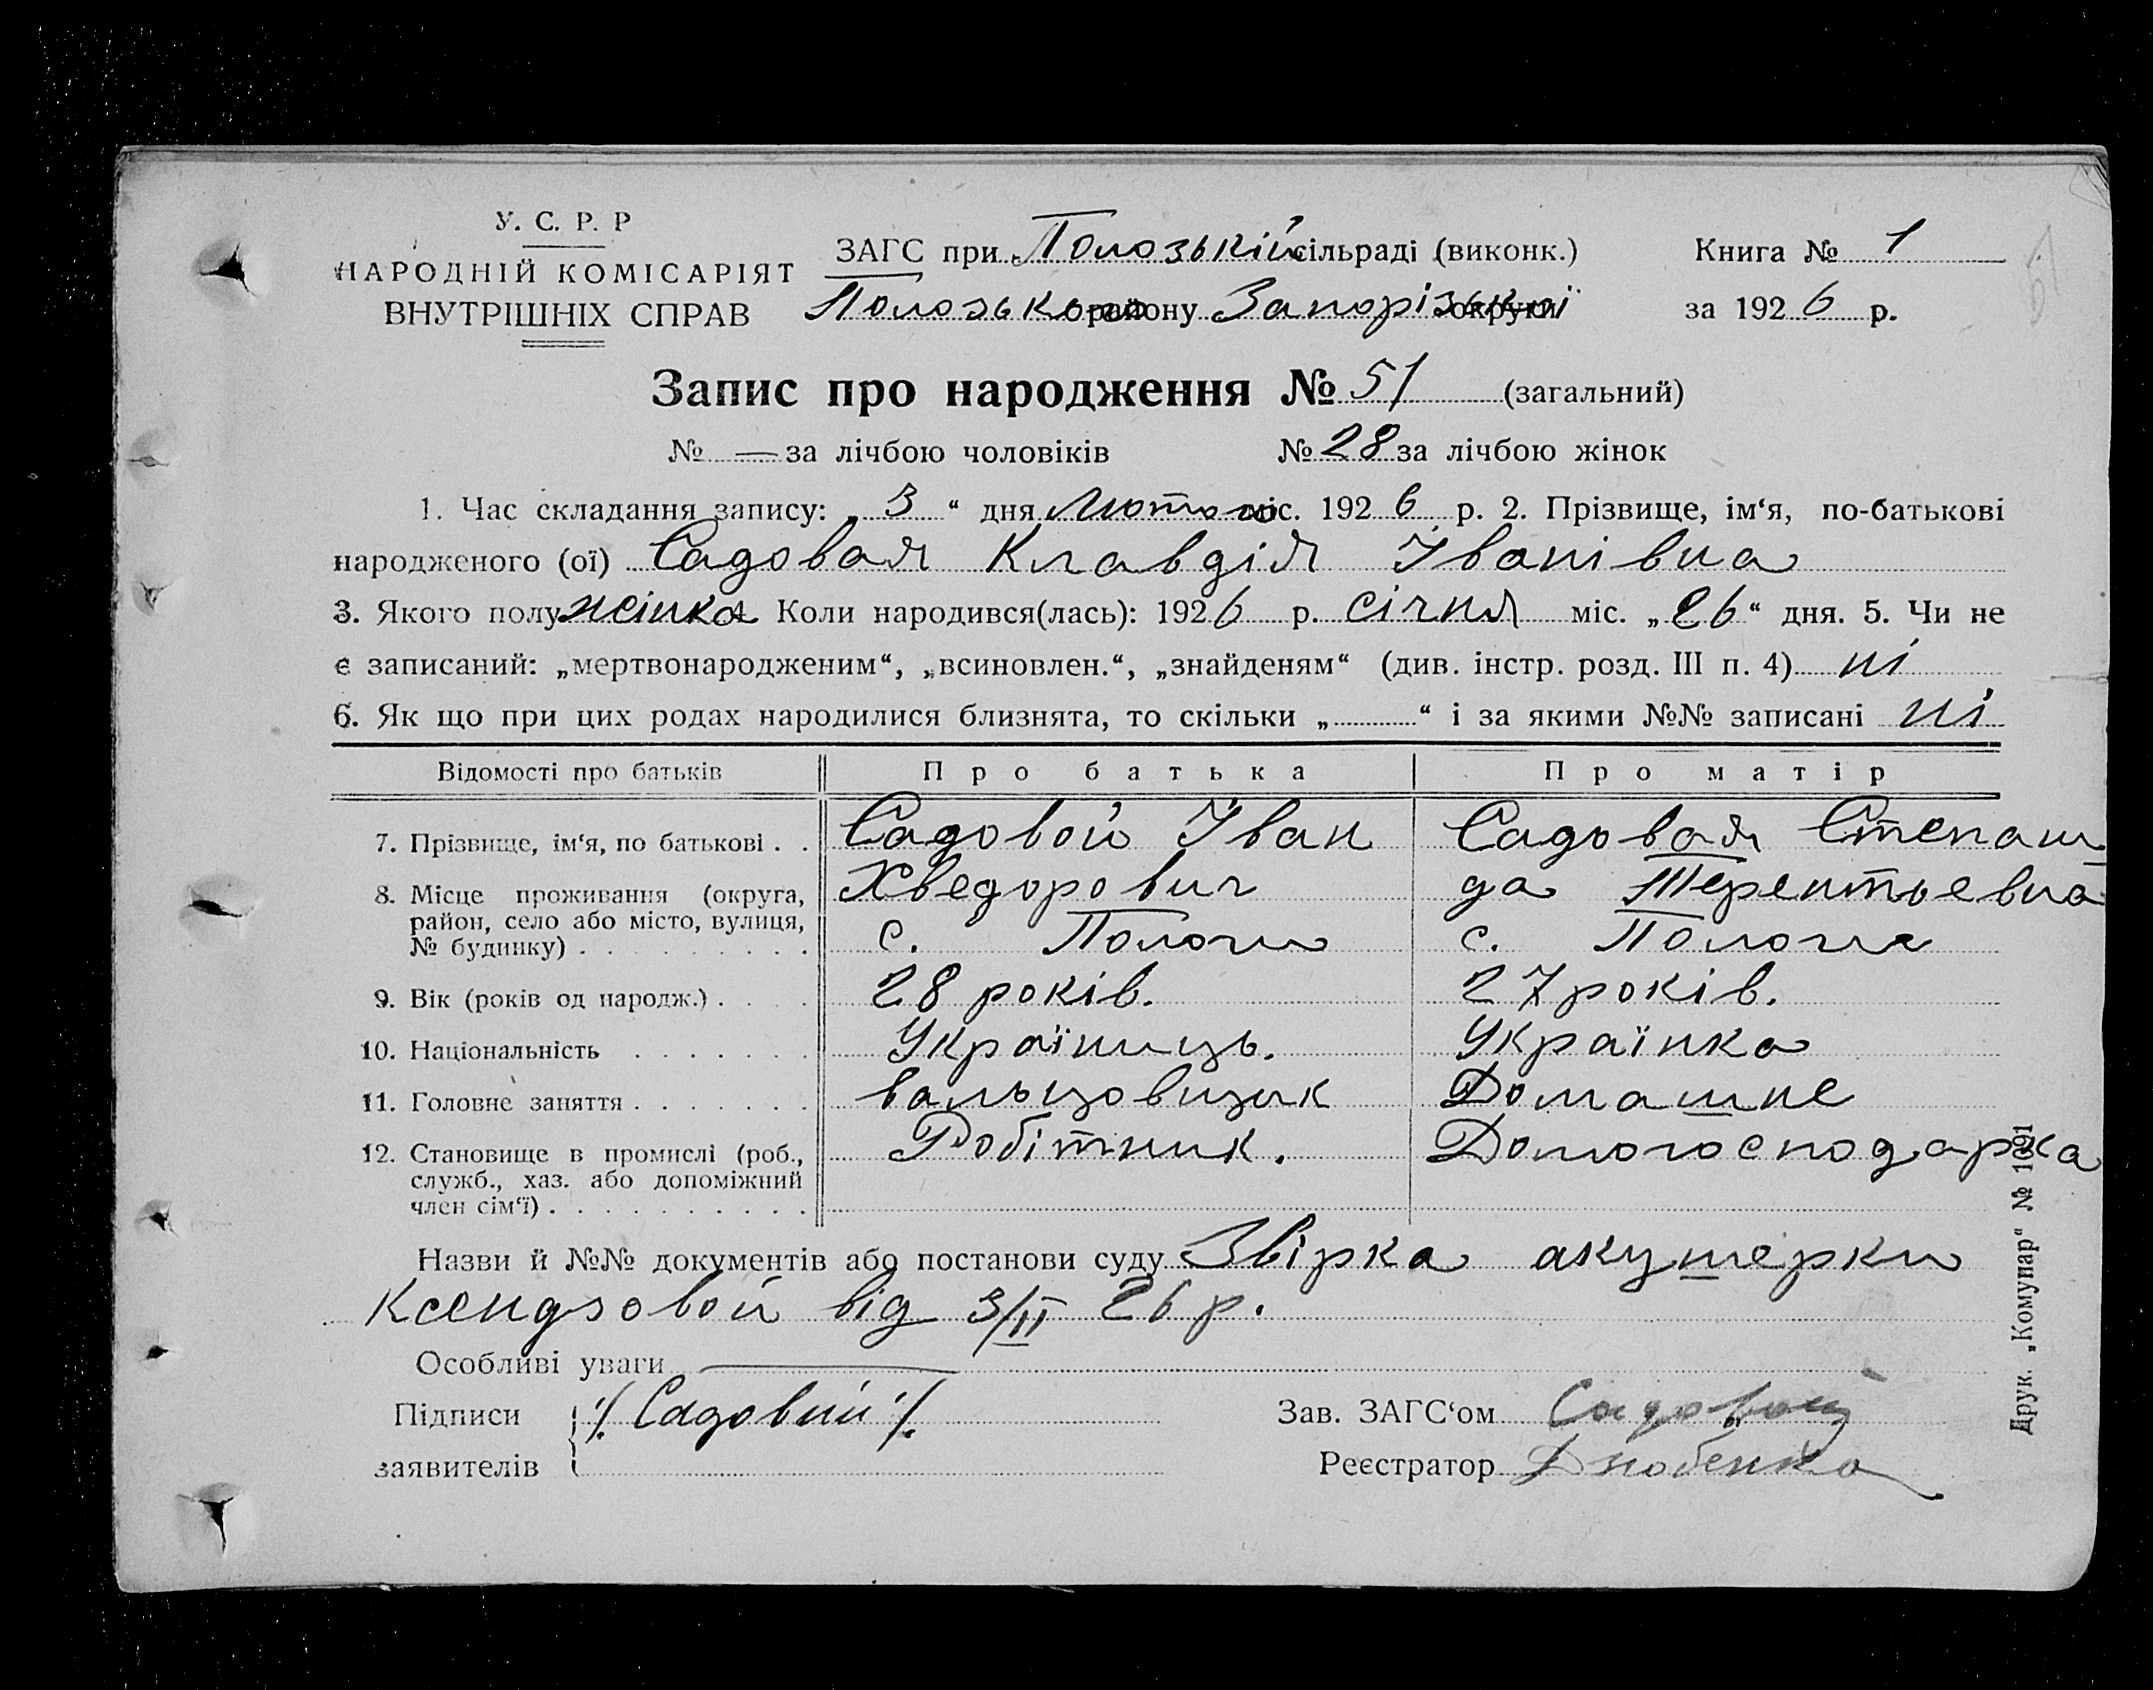 У. С. Р. Р
НАРОДНІЙ КОМІСАРІЯТ
ВНУТРІШНІХ СПРАВ
ЗАГС при Полозькій сільраді (виконк.)
Полозького району Запорізької округи
Книга № 1
за 1926 р.
Запис про народження № 51 (загальний)
№ — за лічбою чоловіків № 28 за лічбою жінок
1. Час складання запису: „3“ дня Лютого міс. 1926 р. 2. Прізвище, ім‘я, по-батькові
народженого (ої) Садовая Клавдія Іванівна
3. Якого полу жінка 4. Коли народився(лась): 1926 р. січня міс. „26“ дня. 5. Чи не
є записаний: „мертвонародженим“, „всиновлен.“, „знайденям“ (див. інстр. розд. III п. 4) ні
6. Як що при цих родах народилися близнята, то скільки „..........“ і за якими №№ записані ні
Відомості про батьків Про батька Про матір
7. Прізвище, ім‘я, по батькові . . Садовой Іван Садовая Степани
8. Місце проживання (округа, Хведорович да Терентьевна
район, село або місто, вулиця,
№ будинку) . . . . . . . . . с. Пологи с. Пологи
9. Вік (років од народж.) . . . . 28 років. 27 років.
10. Національність . . . . . . . Українць. Українка
11. Головне заняття . . . . . . . вальцовщик Домашне
12. Становище в промислі (роб., Робітник. Домогосподарка
служб., хаз. або допоміжний
член сім‘ї) . . . . . . . . . .
Назви й №№ документів або постанови суду Звірка акушерки
Ксендзовой від 3/II 26 р.
Особливі уваги —
Підписи /. Садовий /.
заявителів
Зав. ЗАГС‘ом Садовой
Реєстратор
Друк. „Комупар“ № 1091